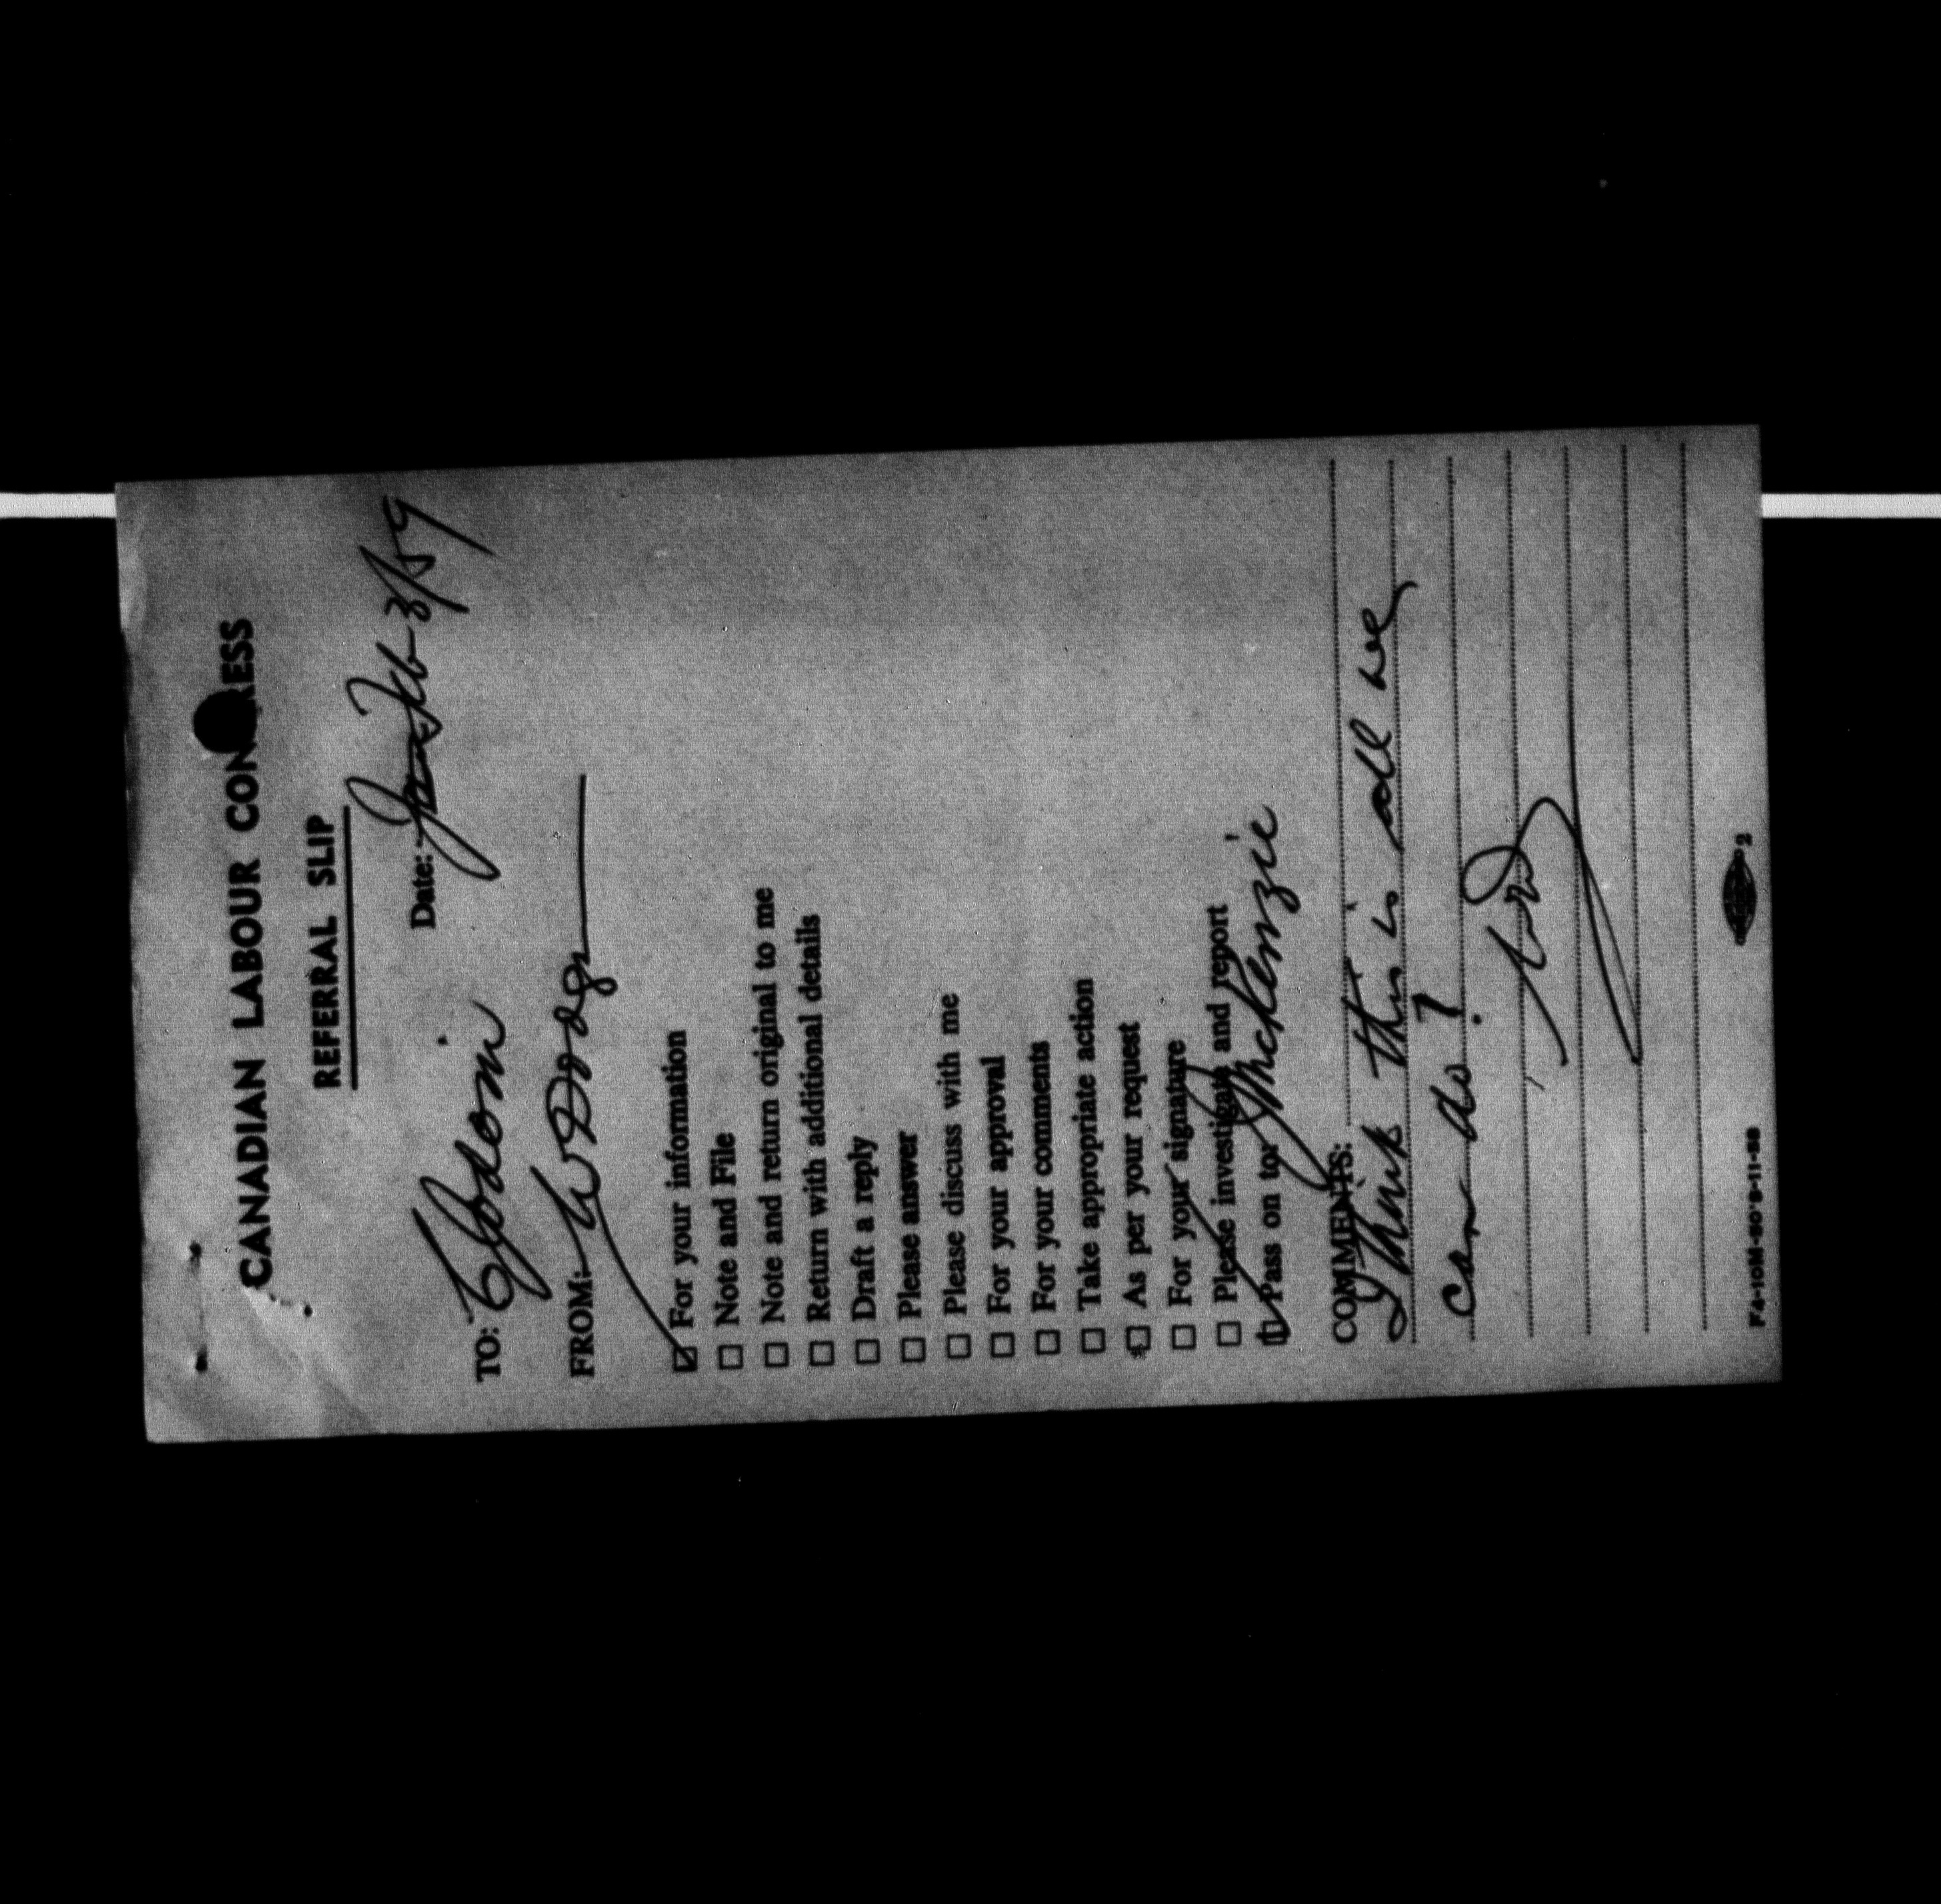 CANADIAN LABOUR CONGRESS
REFERRAL SLIP
Date: Feb 3/59
TO: Jodoin
FROM: Dodge
☑ For your information
☐ Note and File
☐ Note and return original to me
☐ Return with additional details
☐ Draft a reply
☐ Please answer
☐ Please discuss with me
☐ For your approval
☐ For your comments
☐ Take appropriate action
☐ As per your request
☐ For your signature
☐ Please investigate and report
☑ Pass on to: Mackenzie
COMMENTS:
I think this is all we
can do?